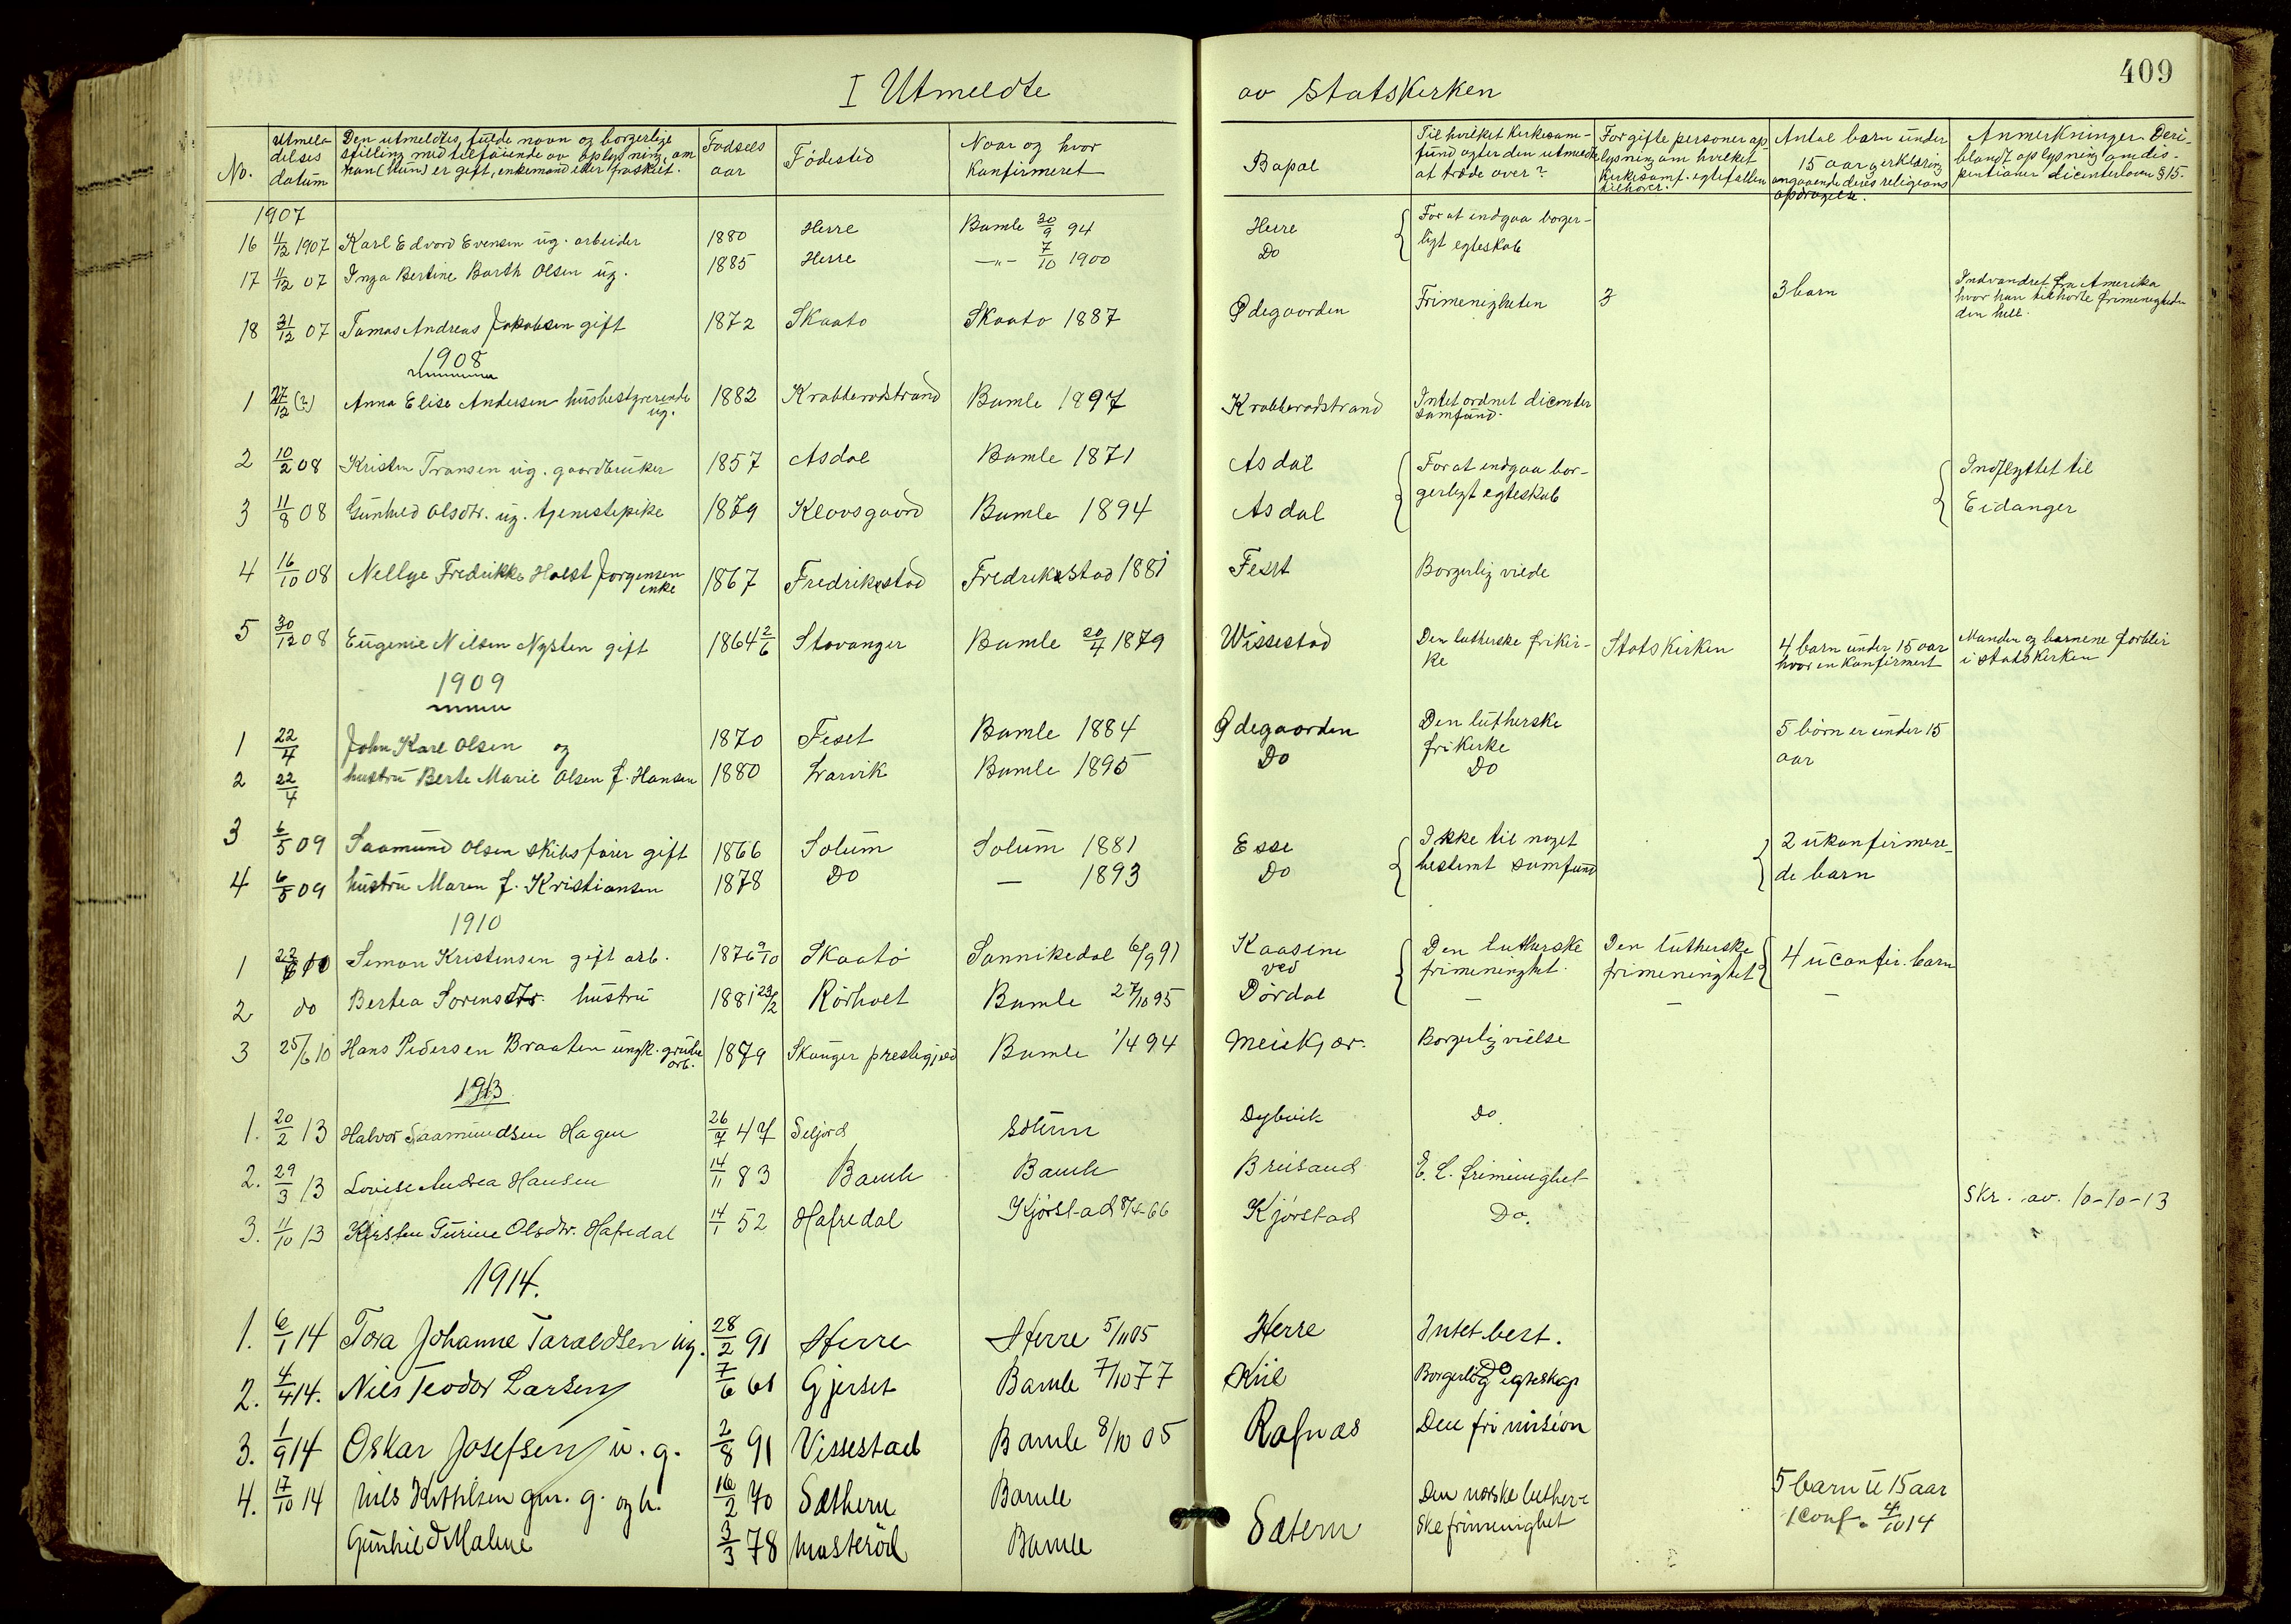 409
I Utmeldte av Statskirken
No.
Utmel-
delses
datum
Den utmeldtes fulde navn og borgerlige
stilling med tilføiende av oplysning, om
han (hun) er gift, enkemand eller fraskilt.
Fødsels
aar
Fødested
Naar og hvor
Konfirmeret
Bopæl
Til hvilket kirkesam-
fund agter den utmeldte
at træde over?
For gifte personer op
lysning om hvilket
kirkesamf. egtefællen
tilhører.
Antal barn under
15 aar, erklæring
angaaende deres religions
opdragelse.
Anmerkninger. Deri-
blandt oplysning om dis-
pentioner dicenterloven § 15.
1907
16 11/12 1907 Karl Edvard Evensen ug. arbeider 1880 Herre Bamle 30/9 94 Herre { For at indgaa borger-
ligt egteskab
17 11/12 07 Inga Bertine Barth Olsen ug. 1885 Herre —"— 7/10 1900 Do
18 31/12 07 Tomas Andreas Jakobsen gift 1872 Skaatø Skaatø 1887 Ødegaarden Frimenigheten 3 3 barn Indvandret fra Amerika
hvor han tilhørte frimenighe-
den hell.
1908
1 27/12 (?) Anna Elise Andersen husbestyrerende
ug. 1882 Krabberødstrand Bamle 1897 Krabberødstrand Intet ordnet dicenter
samfund.
2 10/2 08 Kristen Fransen ug. gaardbruker 1857 Asdal Bamle 1871 Asdal { For at indgaa bor-
gerligt egteskab { Indflyttet til
Eidanger
3 11/8 08 Gunhild Olsdtr. ug. tjenestepike 1879 Klovsgaard Bamle 1894 Asdal
4 16/10 08 Nellye Fredrikke Holst Jørgensen
enke 1867 Fredrikstad Fredrikstad 1881 Feset Borgerlig viede
5 30/12 08 Eugenie Nilsen Nysten gift 1864 2/6 Stavanger Bamle 20/4 1879 Wissestad Den lutherske frikir-
ke Statskirken 4 barn under 15 aar
hvor en konfirmert Manden og barnene forblir
i statskirken
1909
1 22/4 John Karl Olsen og 1870 Feset Bamle 1884 Ødegaarden Den lutherske
frikirke 5 börn er under 15
aar
2 22/4 hustru Berte Marie Olsen f. Hansen 1880 Larvik Bamle 1895 Do Do
3 6/5 09 Saamund Olsen skibsfører gift 1866 Solum Solum 1881 Esse { Ikke til noget
bestemt samfund { 2 ukonfirmere-
de barn
4 6/5 09 hustru Maren f. Kristiansen 1878 Do — 1893 Do
1910
1 10 Simon Kristensen gift arb. 1876 9/10 Skaatö Sannikedal 6/9 91 Kaasene
ved { Den lutherske
frimeninghet. Den lutherske
frimeninghet { 4 uconfir. barn
2 do Bertea Sørensdtr. hustru 1881 23/2 Rörholt Bamle 27/10 95 Dördal — — —
3 25/6 10 Hans Pedersen Braaten ungk. grube
arb. 1879 Skouger prestegjeld Bamle 1/4 94 Meiekjær. Borgerlig vielse
1913
1. 20/2 13 Halvor Saamundsen Hagen 26/7 47 Seljord Solum Dybvik Do.
2. 29/3 13 Lovise Andrea Hansen 14/11 83 Bamle Bamle Breisand E. L. frimeninghet
3. 11/10 13 Kirsten Turine Olsdtr. Hafredal 14/1 52 Hafredal Kjörstad 8/4-66 Kjörstad Do. Skr. av. 10-10-13
1914.
1. 6/1 14 Tora Johanne Taraldsen ug. 28/2 91 Herre Herre 5/11 05 Herre Intet best.
2. 4/4 14. Nils Teodor Larsen 7/6 61 Gjerset Bamle 7/10 77 Kiil Borgerlig egteskap
3. 1/9 14 Oskar Josefsen u. g. 2/8 91 Vissestad Bamle 8/10 05 Rafnæs Den fri mission
4. 17/10 14 Nils Kittilsen gm. g. og h. 16/2 70 Sæthern Bamle Sætern Den norske luther-
ske frimenighet 5 barn u 15 aar
1 conf. 4/10 14
Gunhild Maline 3/3 78 Mosteröd Bamle